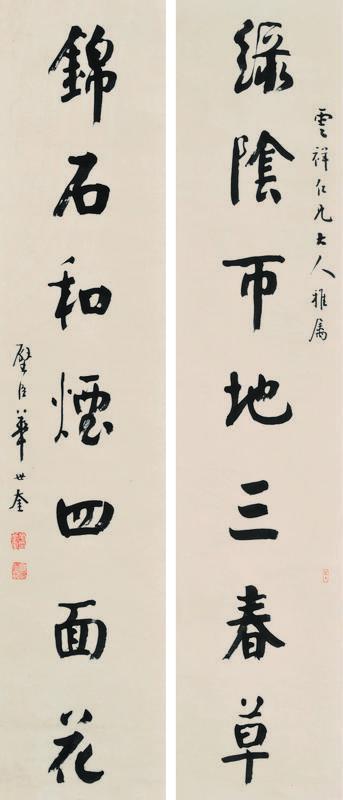 雲祥仁兄大人雅屬
綠陰帀地三春草
錦石和煙四面花
璧臣華世奎